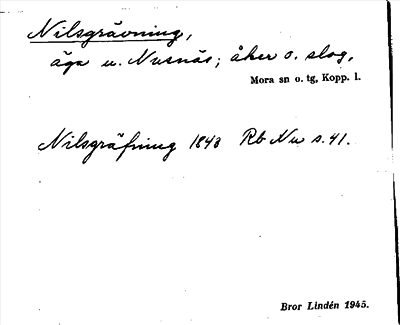 Nilsgrävning,
äga u. Nusnäs; åker o. slog,
Mora sn o. tg, Kopp. l.
Nilsgräfning 1843 Rb Nu s. 41.
Bror Lindén 1945.